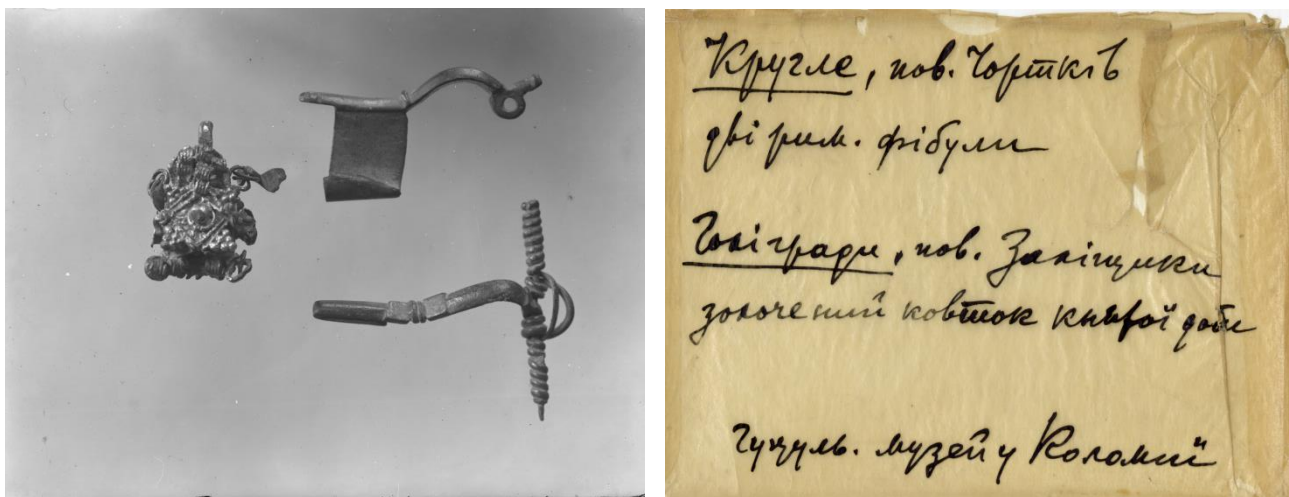 Кругле, пов. Чортків
дві рим. фібули
Голігради, пов. Заліщики
золочений ковток княжої доби
гуцуль. музей у Коломиї